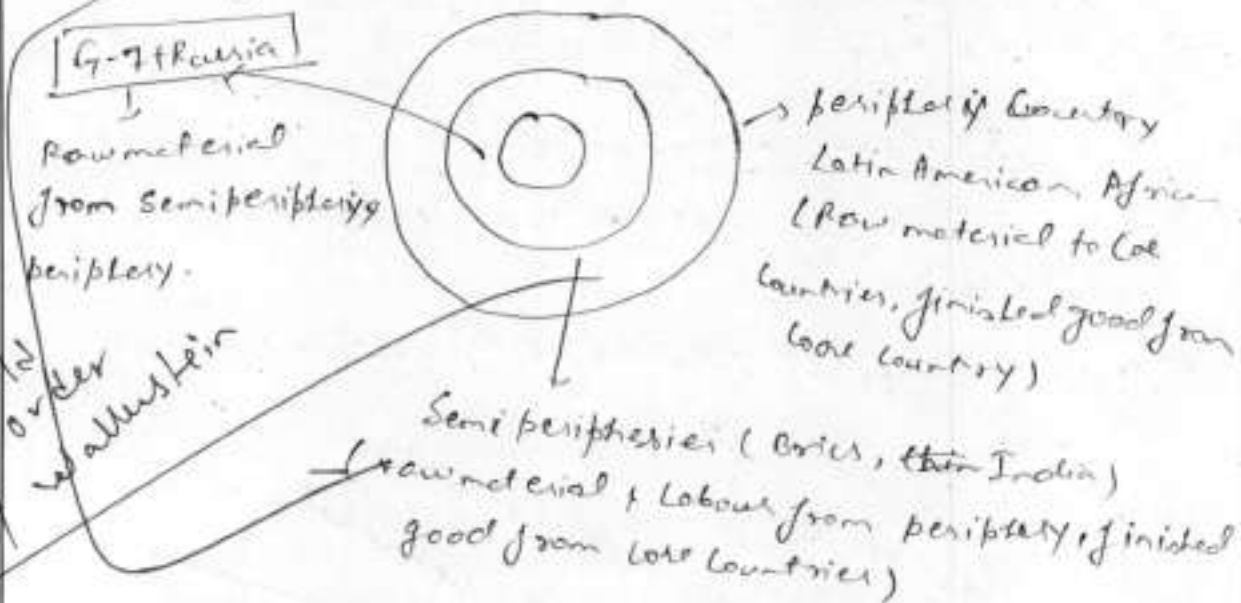 G-7+Russia
Rawmaterial
from semiperiphery,
periphery.
periphery Country
Latin American, Africa
(Raw material to Core
Countries, finished good from
Core Country)
Semi peripheries (Brics, India)
(raw material & Labour from periphery, finished
good from Core Countries)
order
wallerstein